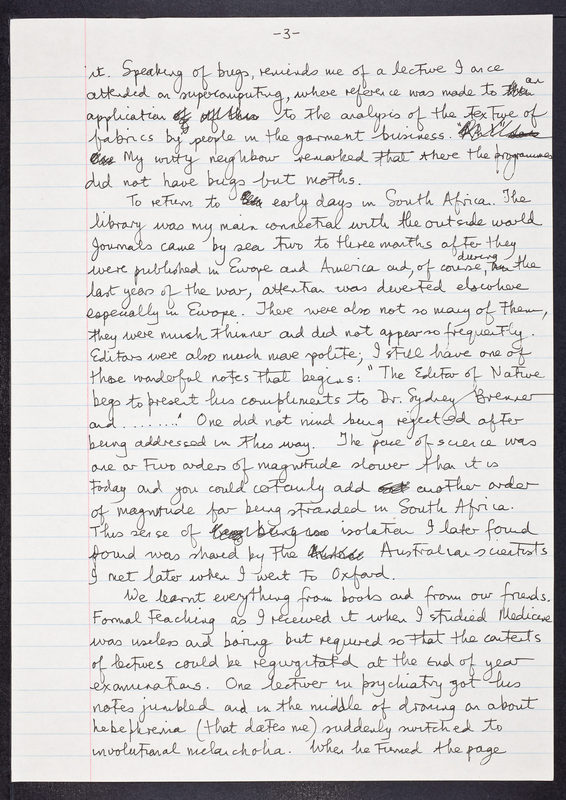 -3-
it. Speaking of bugs, reminds me of a lecture I once
attended on supercomputing, where reference was made to an
application to the analysis of the texture of
fabrics by people in the garment business.
My witty neighbour remarked that there the programmes
did not have bugs but moths.
To return to early days in South Africa. The
library was my main connection with the outside world
Journals came by sea two to three months after they
were published in Europe and America and, of course, during the
last years of the war, attention was diverted elsewhere
especially in Europe. There were also not so many of them,
they were much thinner and did not appear so frequently.
Editors were also much more polite; I still have one of
those wonderful notes that begins: "The Editor of Nature
begs to present his compliments to Dr. Sydney Brenner
and ........" One did not mind being rejected after
being addressed in this way. The pace of science was
one or two orders of magnitude slower than it is
today and you could certainly add another order
of magnitude for being stranded in South Africa.
This sense of isolation I later found
found was shared by the Australian scientists
I met later when I went to Oxford.
We learnt everything from books and from our friends.
Formal teaching as I received it when I studied Medicine
was useless and boring but required so that the contents
of lectures could be regurgitated at the end of year
examinations. One lecturer in psychiatry got his
notes jumbled and in the middle of droning on about
hebephrenia (that dates me) suddenly switched to
involutional melancholia. When he turned the page